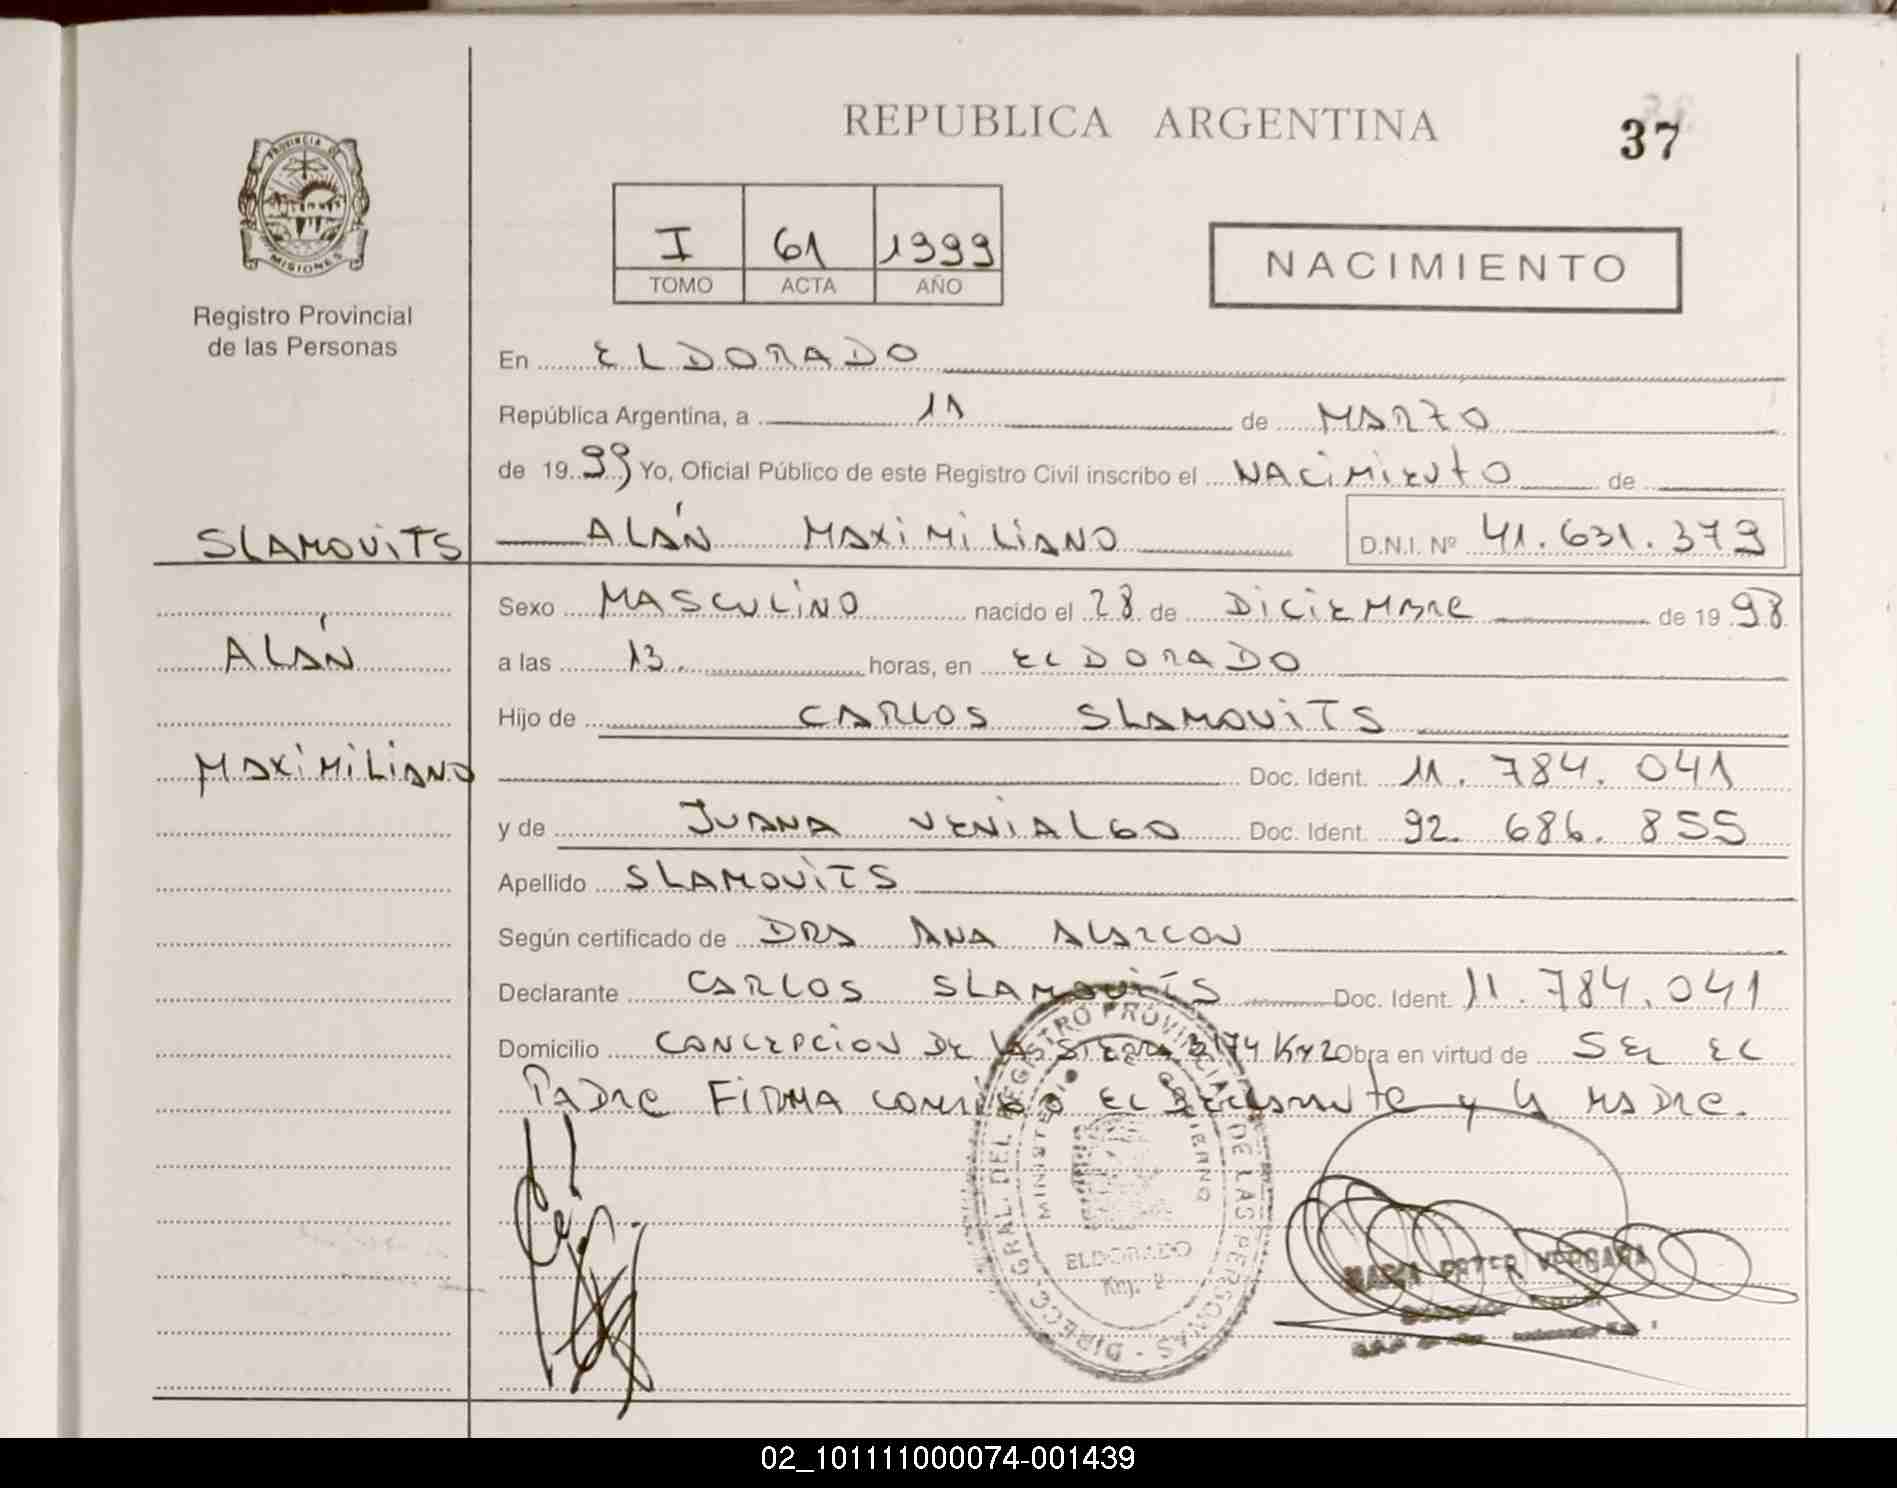 REPUBLICA ARGENTINA
37
PROVINCIA DE
MISIONES
Registro Provincial
de las Personas
I 61 1999
TOMO ACTA AÑO
NACIMIENTO
En ELDORADO
República Argentina, a 11 de MARZO
de 19 99 Yo, Oficial Público de este Registro Civil inscribo el NACiMiENtO de
SLAMOViTS ALÁN MAXiMiLiANO D.N.I. Nº 41.631.379
Sexo MASCULiNO nacido el 28 de DiCiEMBRE de 19 98
ALÁN a las 13. horas, en ELDORADO
Hijo de CARLOS SLAMOViTS
MAXiMiLiANO Doc. Ident. 11.784.041
y de JUANA VENiALGO Doc. Ident. 92.686.855
Apellido SLAMOViTS
Según certificado de DRA ANA ALARCON
Declarante CARLOS SLAMOViTS Doc. Ident. 11.784.041
Domicilio CONCEPCiON DE LA SiERRA Km2 Obra en virtud de SER EL
PADRE FiRMA CONMiGO EL DECLARANTE y LA MADRE.
DIRECC. GRAL. DEL REGISTRO PROVINCIAL DE LAS PERSONAS
MINISTERIO GOBIERNO
ELDORADO
MARIA ESTER VERGARA
02_101111000074-001439